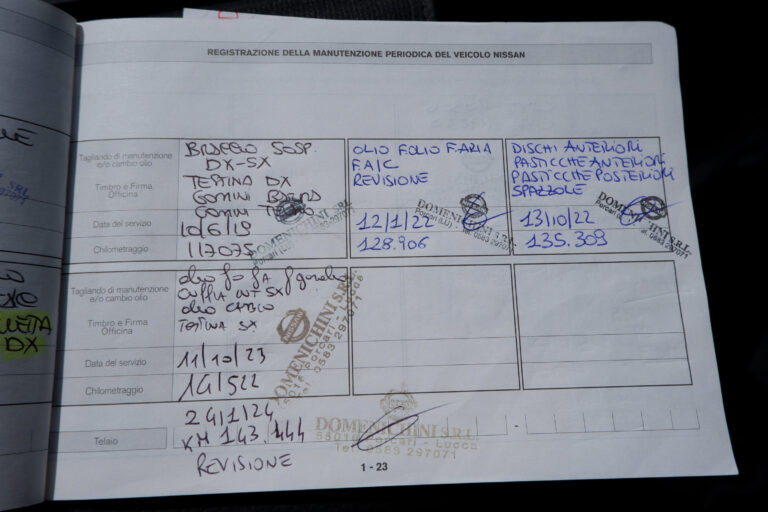 REGISTRAZIONE DELLA MANUTENZIONE PERIODICA DEL VEICOLO NISSAN
Tagliando di manutenzione
e/o cambio olio
Timbro e Firma
Officina
Data del servizio
Chilometraggio
SOSP.
DX-SX
TESTINA DX
GOMINI
GOMINI
10/6/19
117075
DOMENICHINI S.R.L.
OLIO FOLIO F.ARIA
F.AIC
REVISIONE
12/1/22
128.906
DOMENICHINI S.R.L.
Porcari (LU) - Tel. 0583 297071
DISCHI ANTERIORI
PASTICCHE ANTERIORI
PASTICCHE POSTERIORI
SPAZZOLE
13/10/22
135.309
DOMENICHINI S.R.L.
Porcari (LU) - Tel. 0583 297071
Tagliando di manutenzione
e/o cambio olio
Timbro e Firma
Officina
Data del servizio
Chilometraggio
CUFFIA INT SX
OLIO CAMBIO
TESTINA SX
11/10/23
141522
DOMENICHINI S.R.L.
55016 Porcari - Lucca
Tel. 0583 297071
Telaio
24/1/24
KM 143.444
REVISIONE
DOMENICHINI S.R.L.
55016 Porcari - Lucca
Tel. 0583 297071
1 - 23
DX